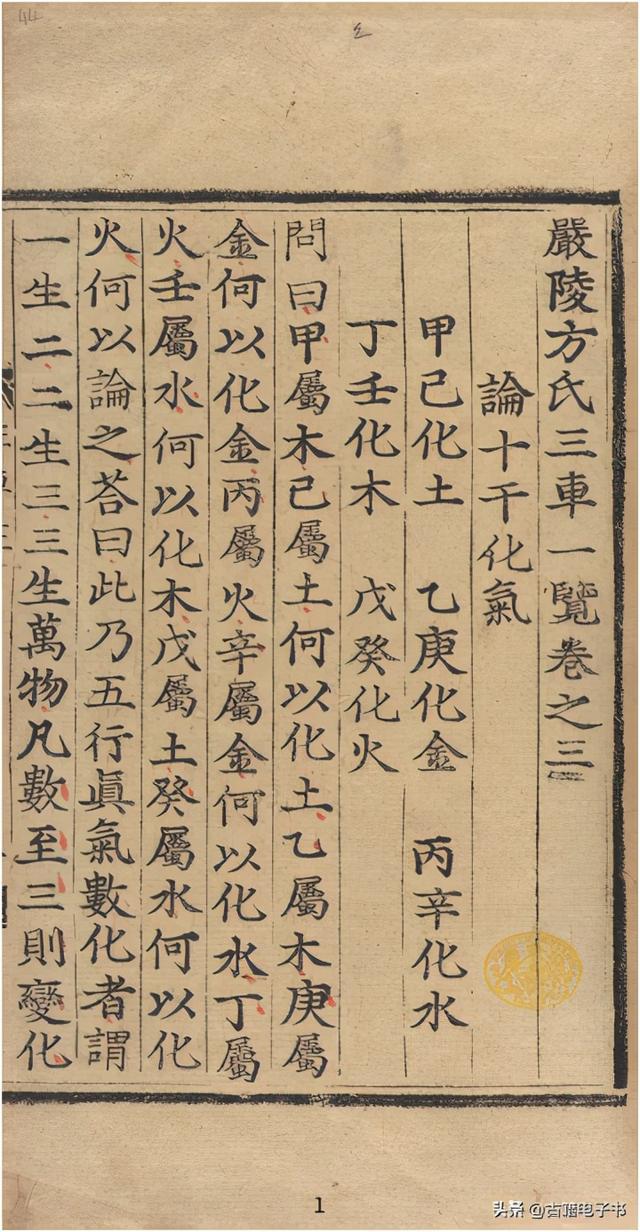 嚴陵方氏三車一覽卷之三
論十干化氣
甲己化土　乙庚化金　丙辛化水
丁壬化木　戊癸化火
問曰甲屬木己屬土何以化土乙屬木庚屬
金何以化金丙屬火辛屬金何以化水丁屬
火壬屬水何以化木戊屬土癸屬水何以化
火何以論之荅曰此乃五行眞氣數化者謂
一生二二生三三生萬物凡數至三則變化
44
1
头条@古籍电子书